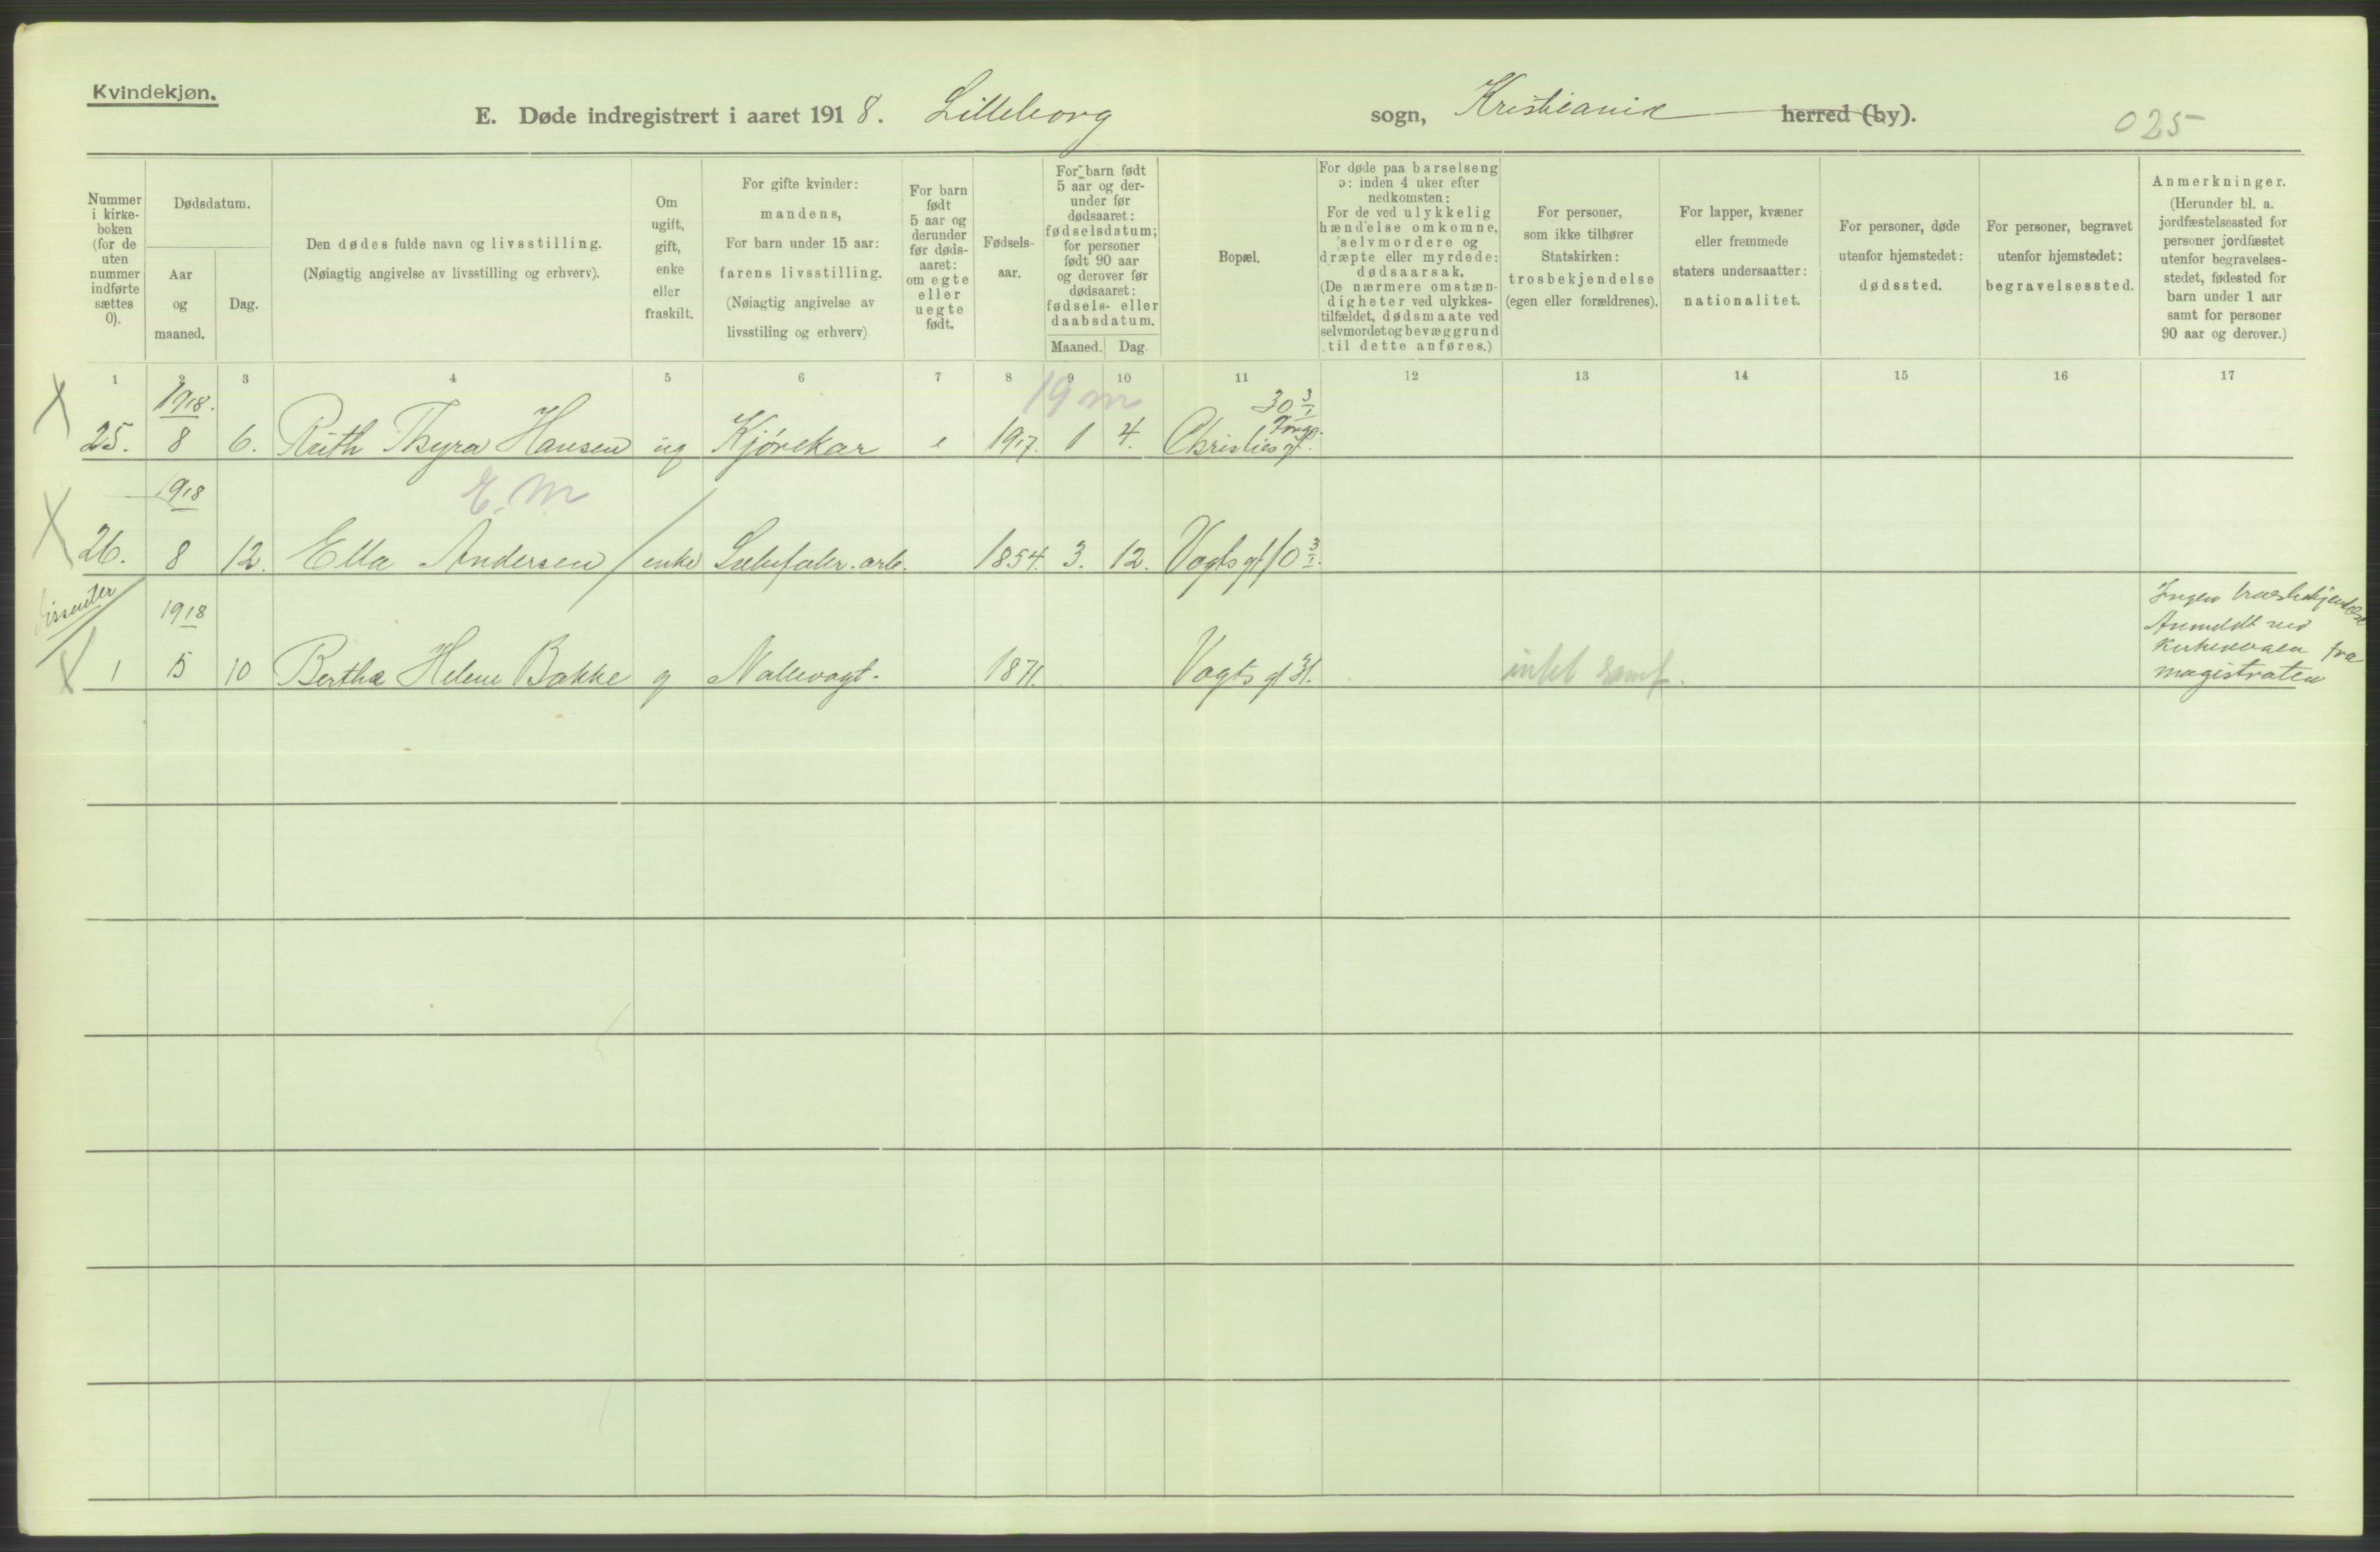 Kvindekjøn.
E. Døde indregistrert i aaret 1918. Lilleborg sogn, Kristiania herred (by).
025
Nummer i kirkeboken (for de uten nummer indførte sættes 0).
Dødsdatum.
Aar og maaned.
Dag.
Den dødes fulde navn og livsstilling.
(Nøiagtig angivelse av livsstilling og erhverv).
Om ugift, gift, enke eller fraskilt.
For gifte kvinder:
mandens,
For barn under 15 aar:
farens livsstilling.
(Nøiagtig angivelse av
livsstiling og erhverv)
For barn født 5 aar og derunder før dødsaaret: om egte eller uegte født.
Fødselsaar.
For barn født 5 aar og derunder før dødsaaret: fødselsdatum; for personer født 90 aar og derover før dødsaaret: fødsels- eller daabsdatum.
Maaned. Dag.
Bopæl.
For døde paa barselseng
ɔ: inden 4 uker efter
nedkomsten:
For de ved ulykkelig
hændelse omkomne,
selvmordere og
dræpte eller myrdede:
dødsaarsak.
(De nærmere omstæn-
digheter ved ulykkes-
tilfældet, dødsmaate ved
selvmordet og bevæggrund
til dette anføres.)
For personer,
som ikke tilhører
Statskirken:
trosbekjendelse
(egen eller forældrenes).
For lapper, kvæner
eller fremmede
staters undersaatter:
nationalitet.
For personer, døde
utenfor hjemstedet:
dødssted.
For personer, begravet
utenfor hjemstedet:
begravelsessted.
Anmerkninger.
(Herunder bl. a.
jordfæstelsessted for
personer jordfæstet
utenfor begravelses-
stedet, fødested for
barn under 1 aar
samt for personer
90 aar og derover.)
1 2 3 4 5 6 7 8 9 10 11 12 13 14 15 16 17
1918. 19 m 30 3/1
25. 8 6. Ruth Thyra Hansen ug Kjørekar e 1917. 1 4. Christies gt.
1918 E. M
26. 8 12. Ella Andersen / enke 1854. 3. 12. Vogts gt 10 3/1.
Dissenter 1918
1 5 10 Bertha Helene Bakke g Nattevagt. 1871. Vogts gt 31. intet samf.
Ingen trosbekjendelse
Anmeldt ved
fra
magistraten